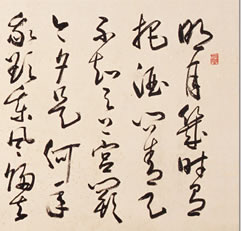 明月幾時有
把酒問青天
不知天上宮闕
今夕是何年
我欲乘風歸去